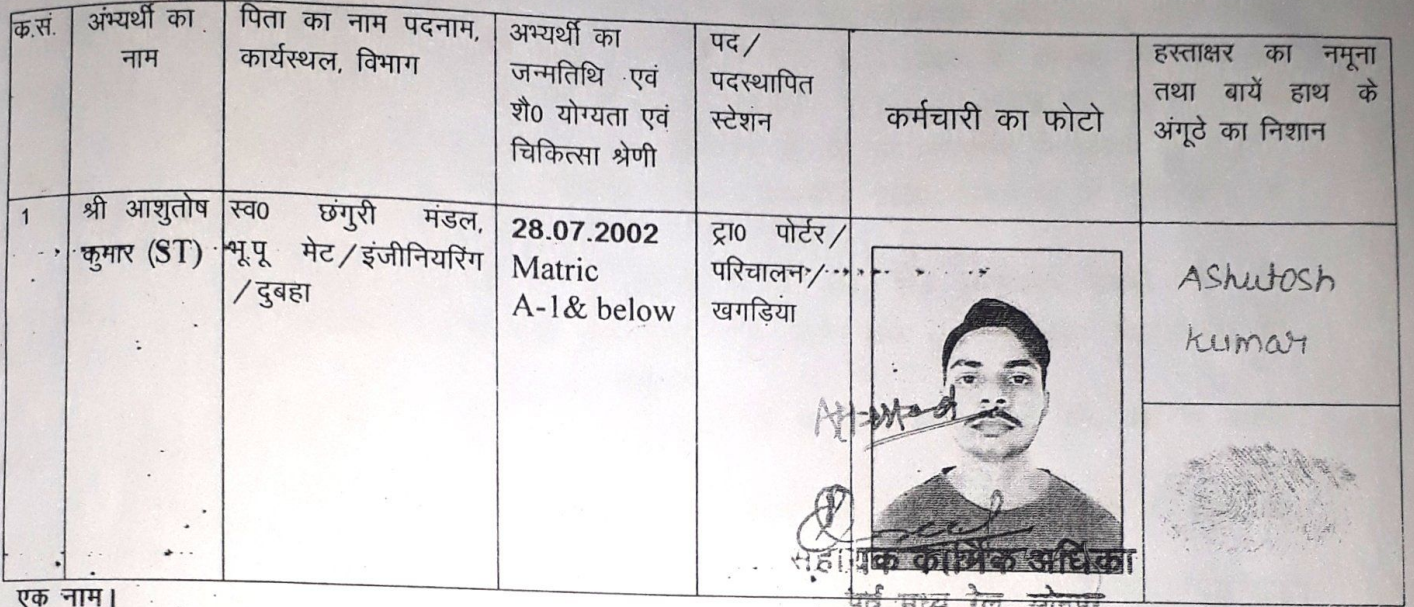 क.सं.
अंभ्यर्थी का
नाम
पिता का नाम पदनाम,
कार्यस्थल, विभाग
अभ्यर्थी का
जन्मतिथि एवं
शै0 योग्यता एवं
चिकित्सा श्रेणी
पद /
पदस्थापित
स्टेशंन
कर्मचारी का फोटो
हस्ताक्षर का नमूना
तथा बायें हाथ के
अंगूठे का निशान
1
श्री आशुतोष
कुमार (ST)
स्व0 छंगुरी मंडल,
भू.पू मेट / इंजीनियरिंग
/ दुबहा
28.07.2002
Matric
A-1& below
ट्रा0 पोर्टर /
परिचालन /
खगड़िया
AShutosh
kumar
Attested
सहायक कार्मिक अधिका
पूर्व मध्य रेल, सोनपुर
एक नाम।